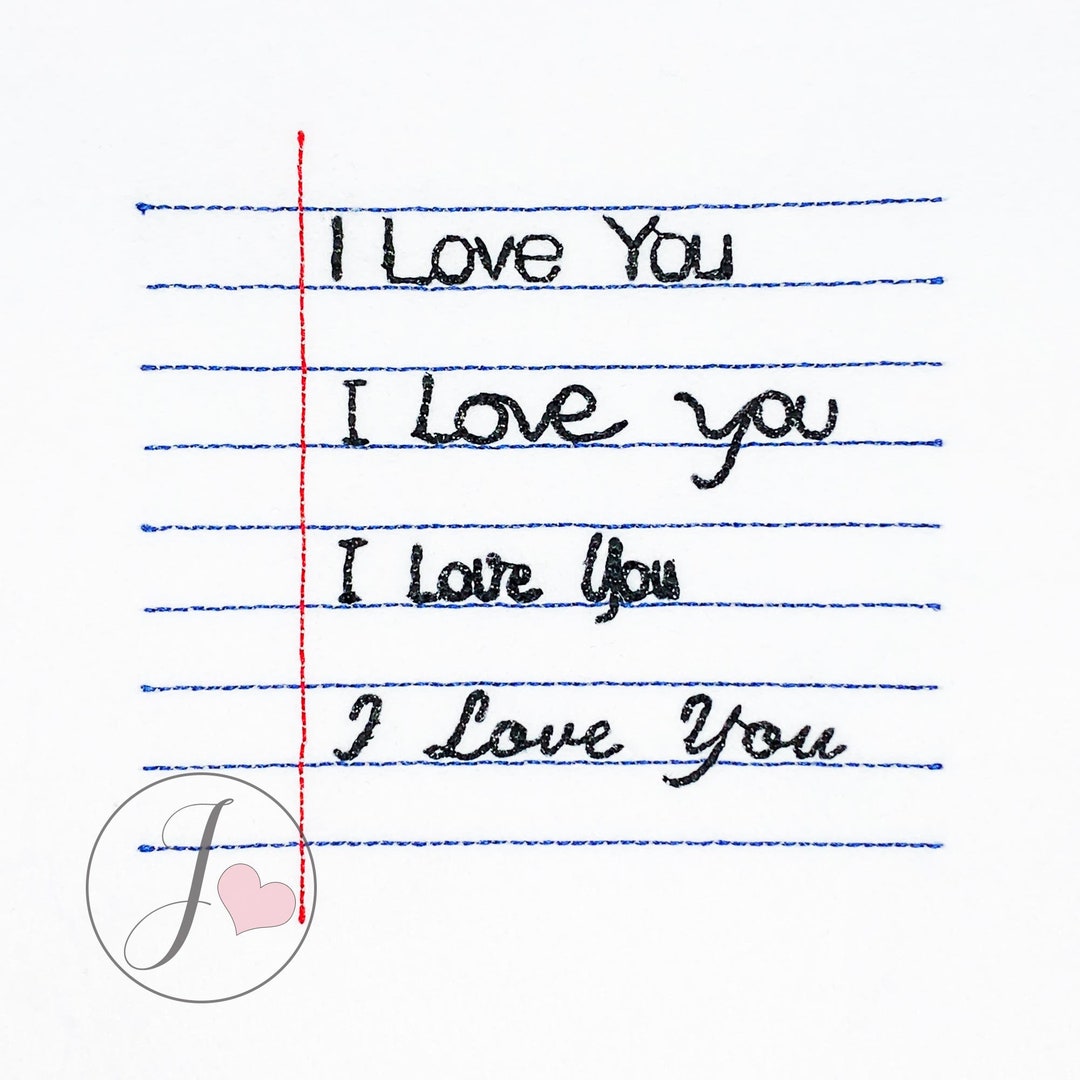 I Love You
I Love you
I Love You
I Love You
J